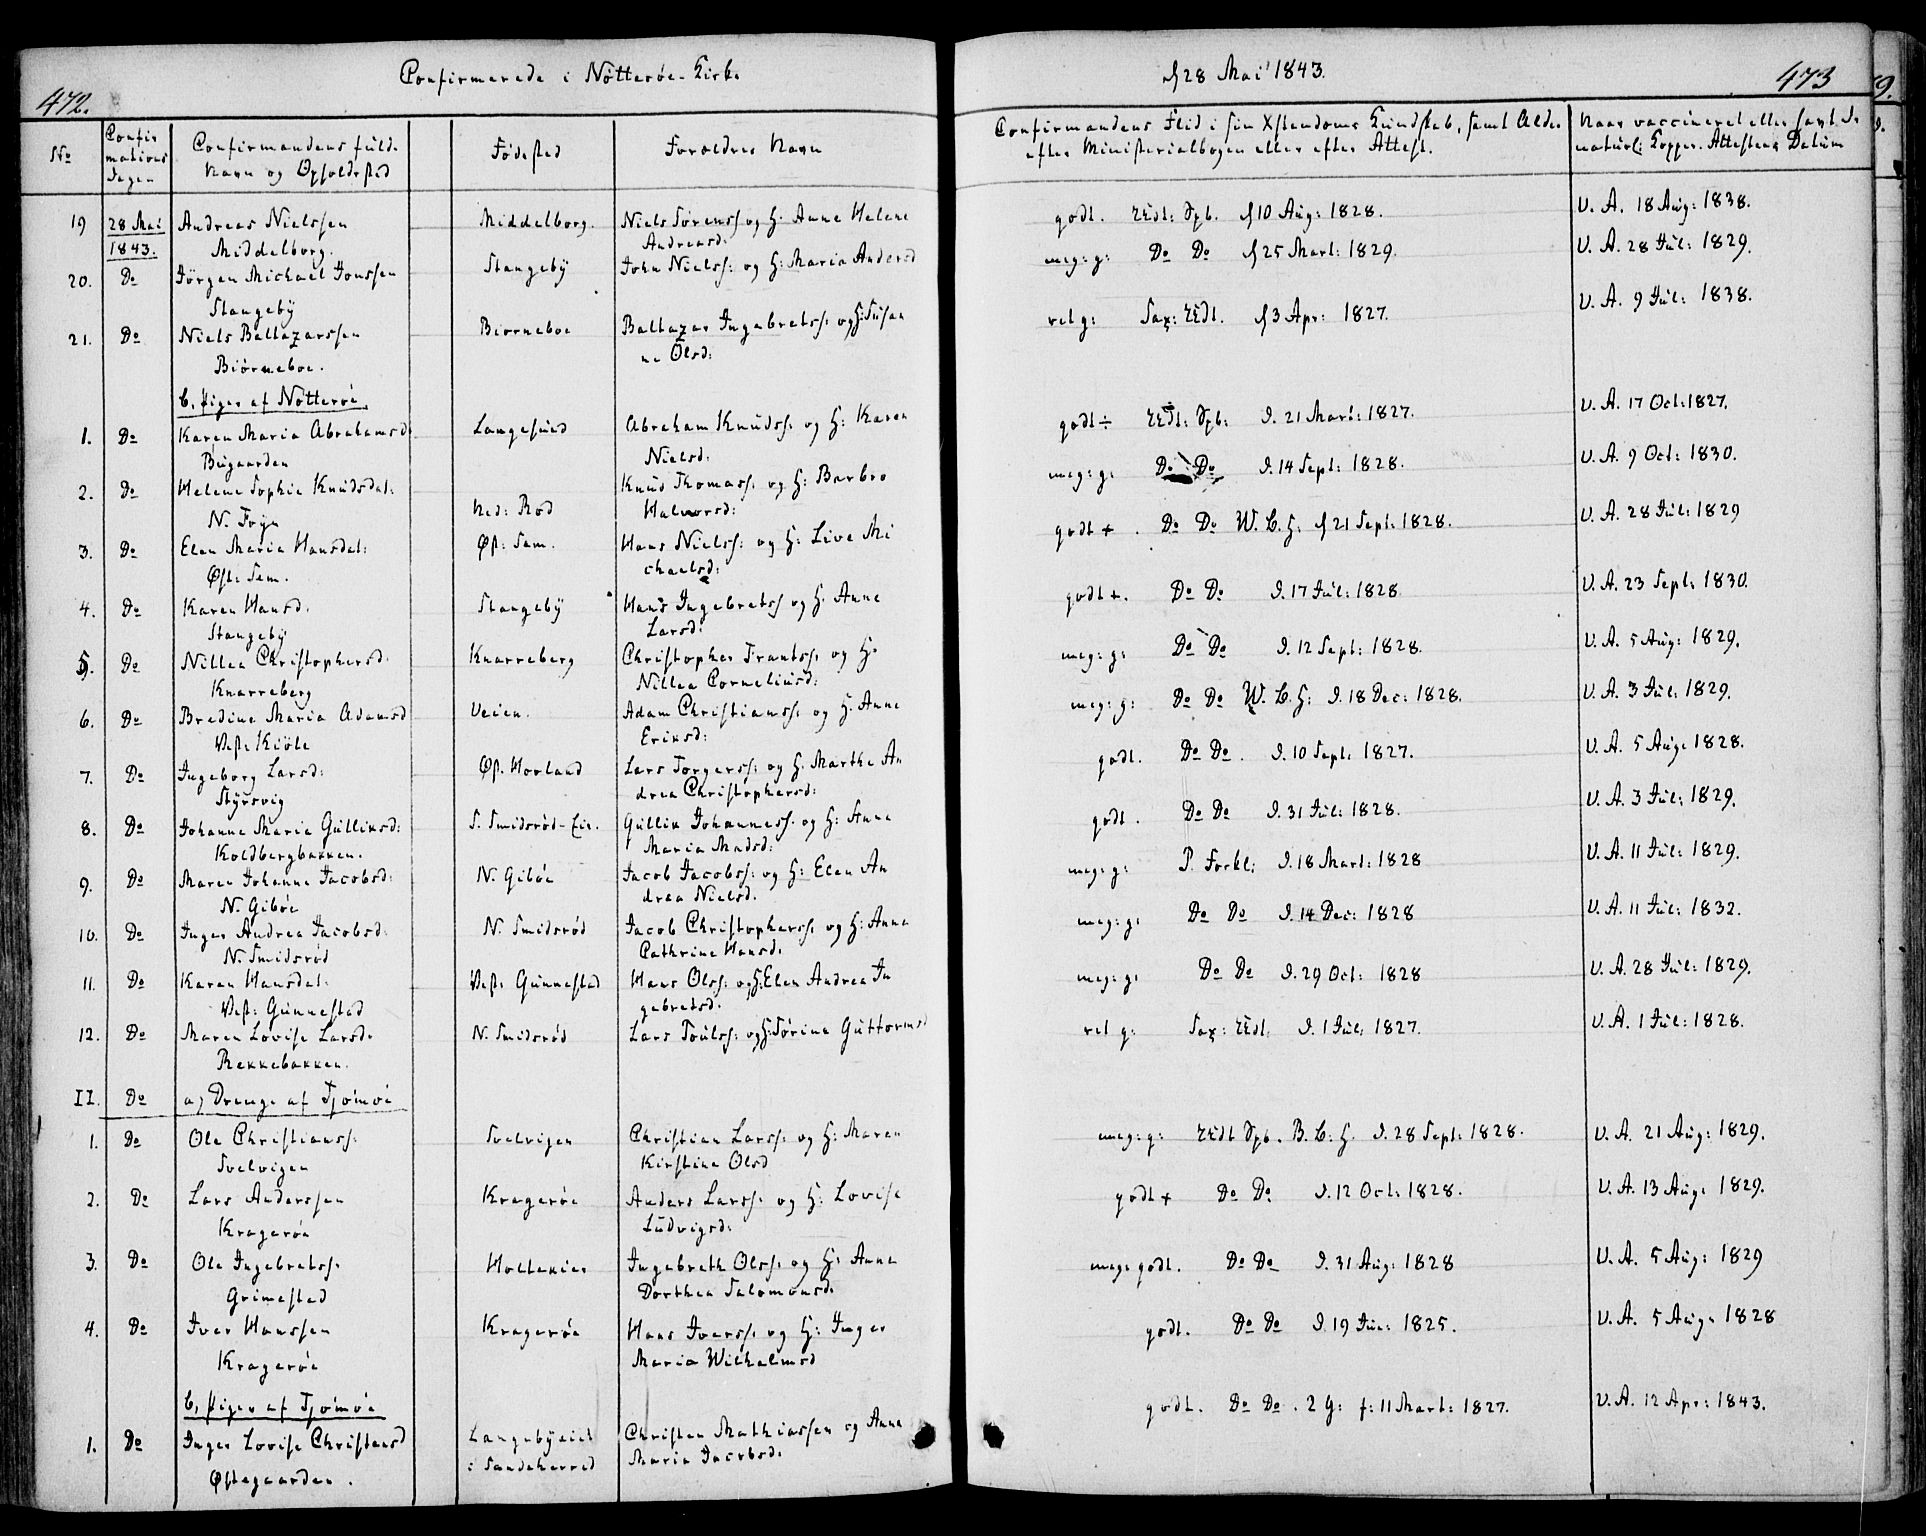 472.
Confirmerede i Nötteröe-Kirke
No
Confir
mations
Dagen
Confirmandens fulde
Navn og Opholdsted
Födested
Foreldres Navn
19
28 Mai
1843.
Andreas Nielssen
Middelborg.
Middelborg.
Niels Sörenss: og H: Anne Helene
Andreasd:
20.
Do
Jörgen Michael Jonssen
Stangeby
Stangeby
John Nielss: og H: Maria Andersd
21.
Do
Niels Baltazarssen
Biörneboe.
Biorneboe
Baltazar Ingebretss: og H: Susan
ne Olsd:
b, Piger af Nötteröe,
1.
Do
Karen Maria Abrahamsd:
Bugaarden
Langesund
Abraham Knudss: og H: Karen
Nielsd:
2.
Do
Helene Sophie Knudsdat:
N. Foÿn
Ned: Rod
Knud Thomass: og H: Barbro
Halvorsd:
3.
Do
Elen Maria Hansdat:
Øst: Sem.
Øs: Sem.
Hans Nielss: og H: Live Mi
chaelsd:
4.
Do
Karen Hansd:
Stangeby
Stangeby
Hans Ingebretss og H: Anne
Larsd:
5.
Do
Nillea Christophersd:
Knarreberg
Knarreberg
Christopher Frantss: og H:
Nillea Corneliusd:
6.
Do
Bredine Maria Adamsd
Vest: Kiöle
Veien.
Adam Christianss: og H: Anne
Eriksd:
7.
Do
Ingeborg Larsd:
Styrsvig
Øs. Hovland
Lars Torgerss: og H: Marthe An
drea Christophersd:
8.
Do
Johanne Maria Gulliksd:
Koldbergbakken.
S. Smidsröd-Eie.
Gullik Johanness. og H: Anne
Maria Madsd:
9.
Do
Maren Johanne Jacobsd:
N. Giböe
N. Giböe
Jacob Jacobss: og H: Elen An
drea Nielsd.
10.
Do
Inger Andrea Jacobsd:
N. Smidsröd
N. Smidsröd
Jacob Christopherss. og H: Anne
Cathrine Hansd.
11.
Do
Karen Hansdat:
Vest: Gunnestad
Vest: Gunnestad
Hans Olss: og H: Elen Andrea In
gebretsd.
12.
Do
Maren Lovise Larsd:
Rekkebakken.
N. Smidsröd
Lars Poulss: og H: Sörine Guttormsd
II.
Do
a, Drenge af Tjömöe
1.
Do
Ole Christianss:
Svelvigen
Svelvigen
Christian Larss: og H: Maren
Kirstine Olsd
2.
Do
Lars Anderssen
Krageröe
Krageröe
Anders Larss: og H: Lovise
Ludvigsd:
3.
Do
Ole Ingebretss.
Grimestad
Holtekier
Ingebreth Olss. og H: Anne
Dorthea Salomonsd:
4.
Do
Iver Hanssen
Krageröe
Krageröe
Hans Iverss. og H: Inger
Maria Wilhelmsd
b, Piger af Tjömöe
1.
Do
Inger Lovise Christensd
Østegaarden.
Langebyeie
i Sandeherred
Christen Mathiassen og Anne
Maria Jacobsd:
d 28 Mai 1843.
473
Confirmandens Flid i sin Xstendoms Kundskab, samt Alder
efter Ministerialbogen eller efter Attest.
Naar vaccineret eller havt de
naturl: Kopper. Attestens Datum
godt. d 10 Aug: 1828.
V. A. 18 Aug: 1838.
meg: g: Do Do d 25 Mart: 1829.
V. A. 28 Jul: 1829.
ret g: d 3 Apr: 1827.
V. A. 9 Jul: 1838.
godt ÷ d. 21 Mart: 1827.
V. A. 17 Oct: 1827.
meg: g: Do Do d. 14 Sept: 1828.
V. A. 9 Oct: 1830.
godt + . Do Do W. B. H: d 21 Sept: 1828.
V. A. 28 Jul: 1829
godt +. Do Do d. 17 Jul: 1828.
V. A. 23 Sept: 1830.
meg: g: Do Do d. 12 Sept: 1828.
V. A. 5 Aug: 1829.
meg: g: Do Do W. B. H: d. 18 Dec: 1828.
V. A. 3 Jul: 1829.
godt. Do Do . d. 10 Sept: 1827.
V. A. 5 Aug: 1828.
godt. Do Do d. 31 Jul: 1828.
V. A. 3 Jul: 1829.
meg: g: P. Forkl: d. 18 Mart: 1828
V. A. 11 Jul: 1829.
meg: g: Do Do d. 14 Dec: 1828
V. A. 11 Jul: 1832.
meg: g: Do Do d. 29 Oct: 1828
V. A. 28 Jul: 1829.
ret g: d. 1 Jul: 1827.
V. A. 1 Jul: 1828.
meg: g: B. B. H. d. 28 Sept: 1828.
V. A. 21 Aug: 1829.
godt + Do Do d. 12 Oct: 1828.
V. A. 13 Aug: 1829.
meg: godt. Do Do d. 31 Aug: 1828
V. A. 5 Aug: 1829
godt. Do Do d. 19 1825.
V. A. 5 Aug: 1828
godt. Do Do . 2 G: f: 11 Mart: 1827.
V. A. 12 Apr: 1843.
9.